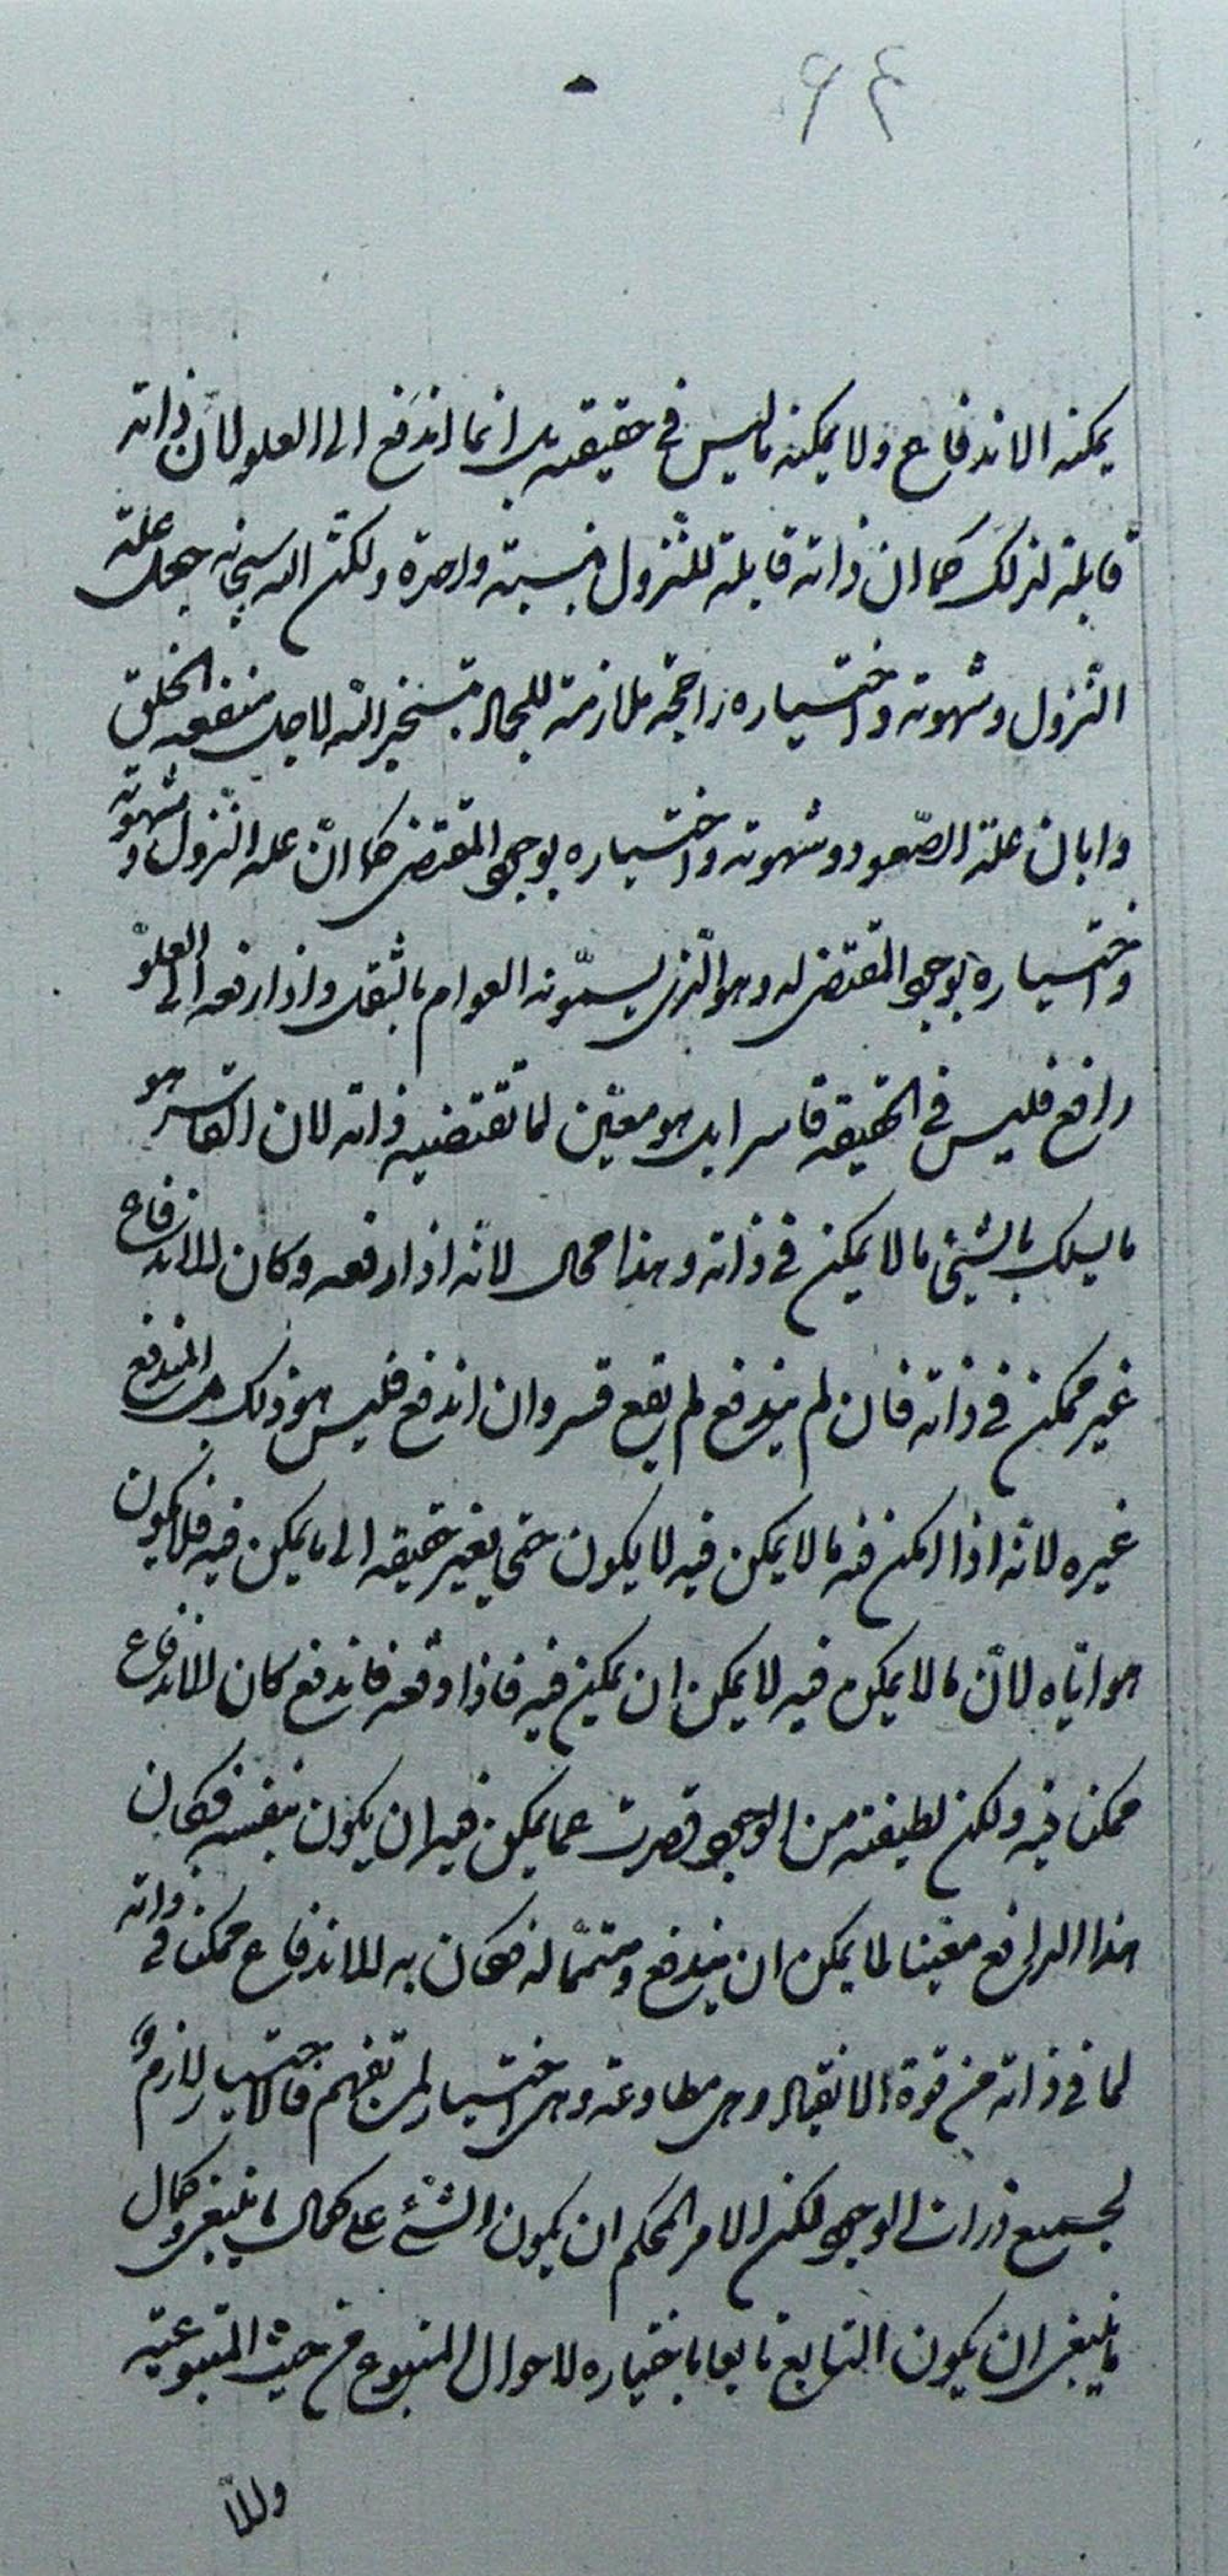 ۶۴
يمكنه الاندفاع ولا يمكنه ما ليس في حقيقته بل انما اندفع الى العلو لان ذاته
قابلة لذلك كما ان ذاته قابلة للنزول بنسبة واحدة ولكن الله سبحانه جعل علة
النزول وشهوته واختياره راجحة ملازمة للمحال بتسخير الله لاجل منفعة الخلق
وابان علة الصّعود وشهوته واختياره بوجود المقتضى كما انّ علة النزول وشهوته
واختياره بوجود المقتضى له وهو الّذى يسمّونه العوام بالثقل واذا رفعه الى العلوّ
رافع فليس في الحقيقة قاسرا بل هو معين لما تقتضيه ذاته لان القاسر هو
ما يسلك بالشيئ ما لا يمكن في ذاته وهذا محال لانّه اذا دفعه وكان الاندفاع
غير ممكن في ذاته فان لم يندفع لم يقع قسر وان اندفع فليس هو ذلك بل المندفع
غيره لانه اذا امكن فيه ما لا يمكن فيه لا يكون حتى يغير حقيقته الى ما يمكن فيه فلا يكون
هو ايّاه لانّ ما لا يمكن فيه لا يمكن ان يمكن فيه فاذا دفعه فاندفع كان الاندفاع
ممكنا فيه ولكن لطيفته من الوجود قصرت عما يمكن فيه ان يكون بنفسه فكان
هذا الدافع معينا لما يمكن ان يندفع ومتمّما له فكان به الاندفاع ممكنا في ذاته
لما في ذاته من قوة الانقياد وهى مطاوعة وهى اختيار لمن تفهم فالاختيار لازم
لجميع ذرات الوجود لكن الامر المحكم ان يكون الشئ على كمال ما ينبغى وكمال
ما ينبغى ان يكون التابع تابعا باختياره لاحوال المتبوع من حيث المتبوعية
والا